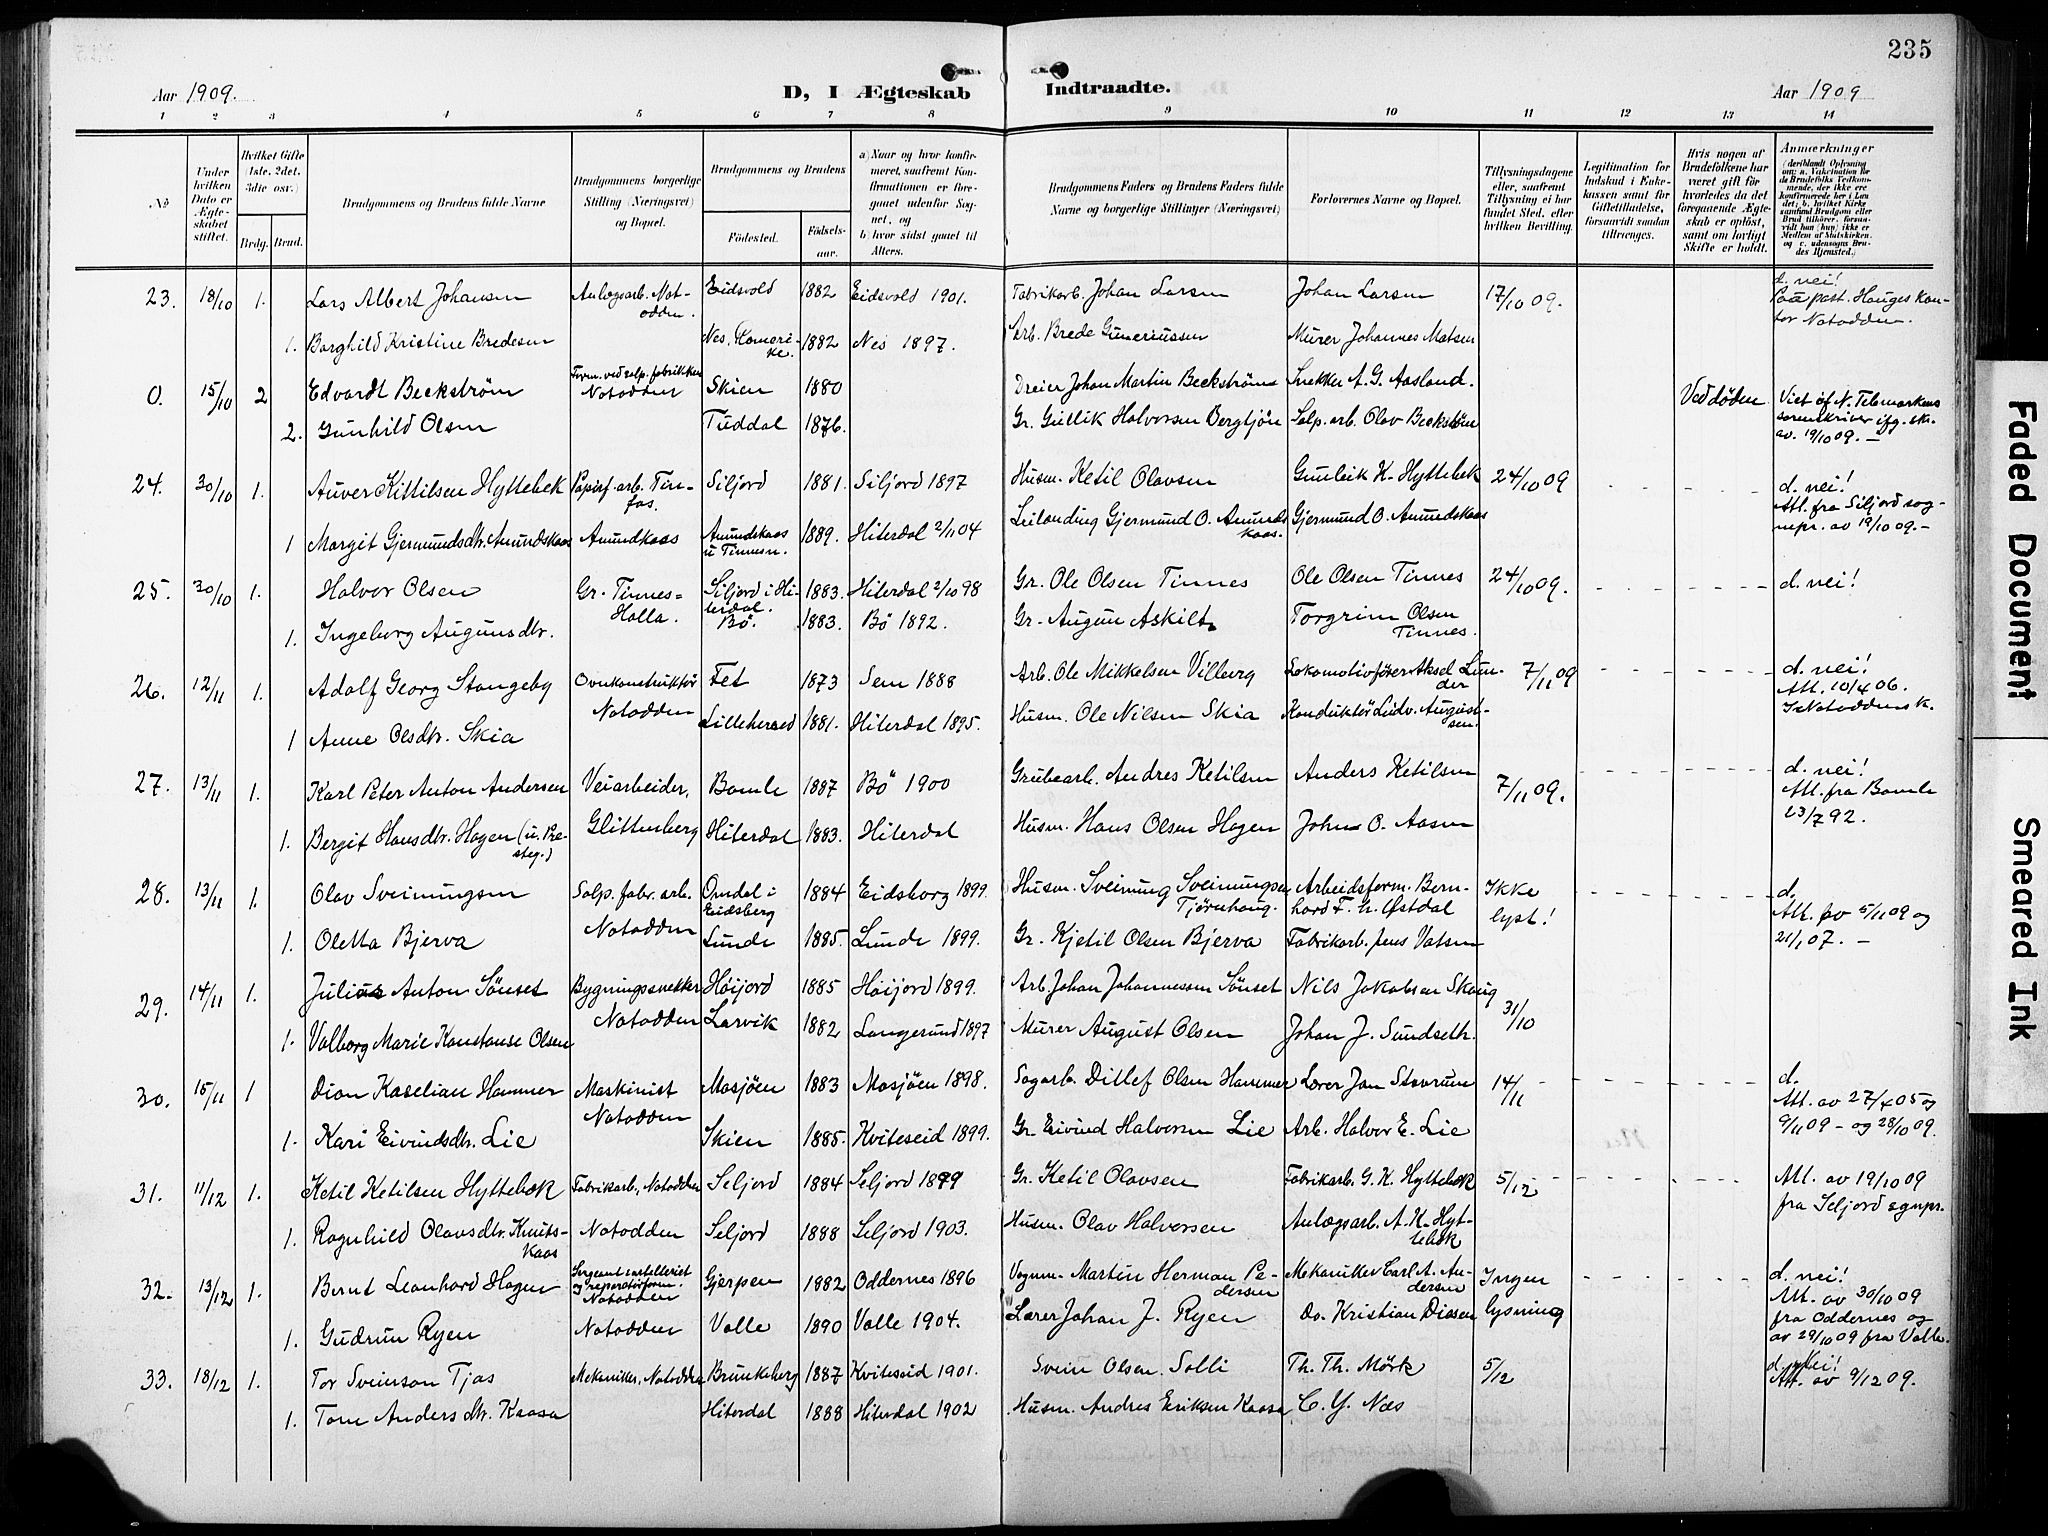 235
Aar 1909.
D, I Ægteskab Indtraadte.
Aar 1909
1 2 3 4 5 6 7 8 9 10 11 12 13 14
No
Under hvilken Dato er Ægteskabet stiftet.
Hvilket Gifte (1ste, 2det, 3die osv.)
Brdg. Brud.
Brudgommens og Brudens fulde Navne
Brudgommens borgerlige Stilling (Næringsvei) og Bopæl.
Brudgommens og Brudens
Fødested.
Fødselsaar.
a) Naar og hvor konfirmeret, saafremt Konfirmationen er foregaaet udenfor Sognet, og
b) hvor sidst gaaet til Alters.
Brudgommens Faders og Brudens Faders fulde Navne og borgerlige Stillinger (Næringsvei)
Forlovernes Navne og Bopæl.
Tillysningsdagene eller, saafremt Tillysning ei har fundet Sted, efter hvilken Bevilling.
Legitimation for Indskud i Enkekassen samt for Giftetilladelse, forsaavidt saadan tiltrænges.
Hvis nogen af Brudefolkene har været gift før hvorledes da det foregaaende Ægteskab er opløst, samt om lovligt Skifte er holdt.
Anmærkninger
(deriblandt Oplysning om: a. Vakcination for de Brudefolks Vedkommende, der ikke ere konfirmerede her i Landet; b. hvilket Kirkesamfund Brudgom eller Brud tilhører, forsaavidt han (hun) ikke er Medlem af Statskirken, og c. udensogns Brudes Hjemsted.)
23. 18/10 1. Lars Albert Johansen Anlægsarb. Notodden. Eidsvold 1882 Eidsvold 1901. Fabrikarb. Johan Larsen Johan Larsen 17/10 09. d. nei! Paa past. Hauges kontor Notodden.
1. Borghild Kristine Bredesen Nes, Romerike. 1882 Nes 1897. Arb. Brede Guneriussen Murer Johannes Matsen
0. 15/10 2 Edvardt Beckstrøm Form. ved salp. fabrikken Notodden Skien 1880 Dreier Johan Martin Beckstrøm Snekker A. G. Aasland. Ved døden Viet af N. Telemarkens sorenskriver ifg. skr. av. 19/10 09. —
2. Gunhild Olsen Tuddal 1876. Gr. Gullik Halvorsen Bergtjøn Salp. arb. Olav Beckstrøm
24. 30/10 1. Auver Kittilsen Hyttebek Papirf. arb. Tinfos. Siljord 1881. Siljord 1897 Husm. Ketil Olavsen Gunleik K. Hyttebek 24/10 09 d. nei! Att. fra Siljord sognepr. av 19/10 09. -
1 Margit Gjermundsdtr. Amundskaas Amundkaas Amundskaas u Tinnesn. 1889. Hiterdal 2/11 04 Leilending Gjermund O. Amundskaas. Gjermund O. Amundskaas
25. 30/10 1. Halvor Olsen Gr. Tinnes- Holla. Siljord i Hiterdal. 1883. Hiterdal 2/10 98 Gr. Ole Olsen Tinnes Ole Olsen Tinnes 24/10 09. d. nei!
1. Ingeborg Augunsdtr. Bø. 1883. Bø 1892. Gr. Augun Askilt. Torgrim Olsen Tinnes.
26. 12/11 1. Adolf Georg Stangeby Ovnkonstruktør Notodden Fet 1873 Sem 1888 Arb. Ole Mikkelsen Villberg Lokomotivfører Aksel Lunder 7/11 09 d. nei! Att. 10/4 06. I Notoddens k.
1 Anne Olsdtr. Skia Lilleherred 1881. Hiterdal 1895. Husm. Ole Nilsen Skia Konduktør Ludv. Augustsen.
27. 13/11 1. Karl Peter Anton Andersen Veiarbeider, Glittenberg Bamle 1887 Bø 1900 Grubearb. Andres Ketilsen Anders Ketilsen 7/11 09. d. nei! Att. fra Bamle 23/7 92.
1. Bergit Hansdtr. Hagen (u. Presteg.) Hiterdal 1883. Hiterdal Husm. Hans Olsen Hagen John O. Aasen
28. 13/11 1. Olav Sveinungsen Salp. fabr. arb. Notodden Omdal i Eidsberg 1884 Eidsborg 1899. Husm. Sveinung Sveinungsen Tjørnhaug. Arbeidsform. Bernhard F. H. Østdal Ikke lyst! d. Att. av 5/11 09 og 21/1 07. —
1. Oletta Bjerva Lunde 1885. Lunde 1899. Gr. Kjetil Olsen Bjerva Fabrikarb. Jens Vatsen
29. 14/11 1. Julius Anton Sønset Bygningssnekker Notodden Høijord 1885 Høijord 1899. Arb. Johan Johannessen Sønset Nils Jakobsen Skaug 31/10
1. Valborg Marie Konstanse Olsen Larvik 1882 Langesund 1897 Murer August Olsen Johan J. Sundseth.
30. 15/11 1 Dion Kaselian Hammer Maskinist Notodden Mosjøen 1883 Mosjøen 1898. Sagarb. Ditlef Olsen Hammer Lærer Jan Stavrum 14/11 d. Att. av 27/4 05 og 9/11 09 - og 28/10 09.
1. Kari Eivindsdtr. Lie Skien 1885. Kviteseid 1899. Gr. Eivind Halvorsen Lie Arb. Halvor E. Lie
31. 11/12 1. Ketil Ketilsen Hyttebæk Fabrikarb., Notodden Seljord 1884 Seljord 1899 Gr. Ketil Olavsen Fabrikarb. G. K. Hyttebæk 5/12 Att. av 19/10 09 fra Seljord sognpr.
1. Ragnhild Olavsdtr. Knutskaas Notodden Seljord 1888 Seljord 1903. Husm. Olav Halvorsen Anlægsarb. A. K. Hyttebæk
32. 13/12 1. Bernt Leonhard Hagen Sergeant i artelleriet og reperatørform. Notodden Gjerpen 1882 Oddernes 1896 Vognm. Martin Herman Pedersen Mekaniker Carl A. Andersen Ingen lysning d. nei! Att. av 30/10 09 fra Oddernes og av 29/10 09 fra Valle.
1. Gudrun Ryen Notodden Valle 1890 Valle 1904. Lærer Johan J. Ryen Do. Kristian Dissen
33. 18/12 1. Tor Sveinson Tjos Mekaniker, Notodden Brunkeberg 1887 Kviteseid 1901. Svein Olsen Solli Th. Th. Mörk 5/12 d. Nei! Att. av 9/12 09.
1. Tone Andersdtr. Kaasa Hiterdal 1888 Hiterdal 1902 Husm. Andres Eriksen Kaasa C. Y. Næs
Faded Document
Smeared Ink